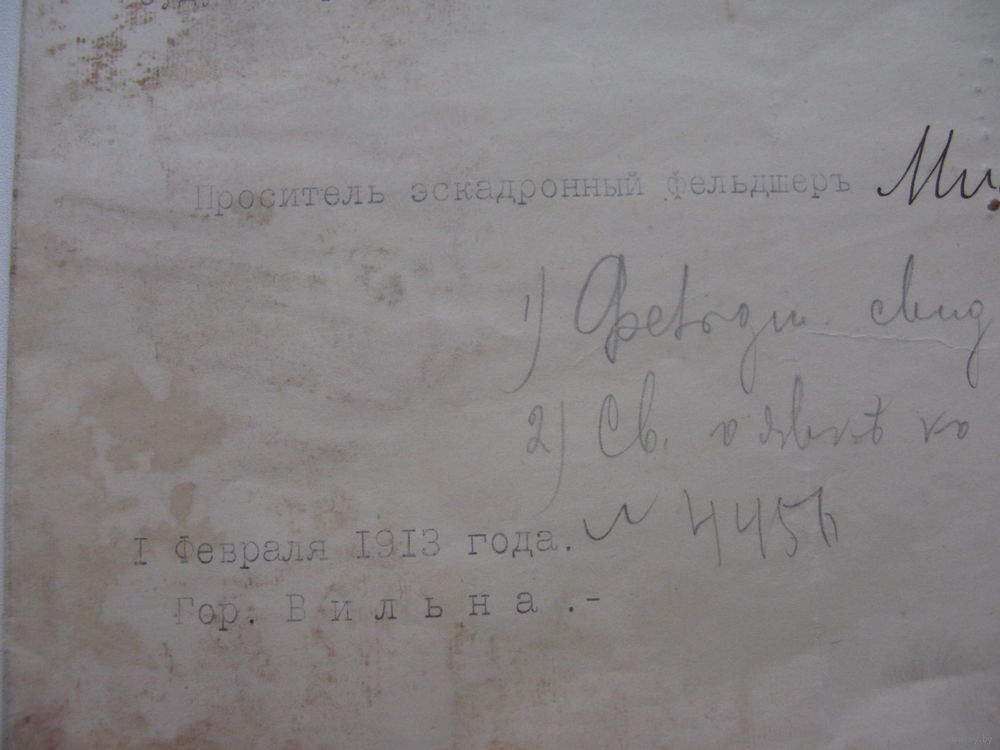 Проситель эскадронный фельдшеръ Ми
1)
2) Св. о явкѣ ко
№ 4456
I Февраля 1913 года.
Гор. Вильна.-